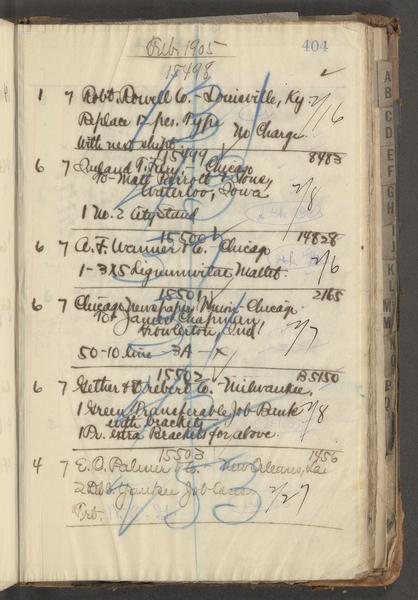 Feb. 1905
404
15498
1 7 Robt. Rowell Co. - Louisville, Ky 2/16
Replace 12-pcs. Type
No Charge
with next shipt.
15499 8483
6 7 Inland T. Fdry. - Chicago
To- Matt Parrott & Sons,
Waterloo, Iowa 2/8
1 No. 2 City Stand
15500 14828
6 7 A. F. Wanner & Co. Chicago
1- 3x5 Lignumvitae Mallet. 2/6
15501 2165
6 7 Chicago Newspaper Union - Chicago
To- James Chapman,
Fowlerton, Ind. 2/7
50-10 line 3A - X
15502 B5150
6 7 Gether & Drebert Co. - Milwaukee,
1 Green Transferable Job Bank 2/8
with brackets
1 Pr. extra Brackets for above.
15503 1456
4 7 E. O. Palmer & Co. - New Orleans, La
2 Yankee Job Cases 2/27
A
B
C
D
E
F
G
H
I
J
K
L
M